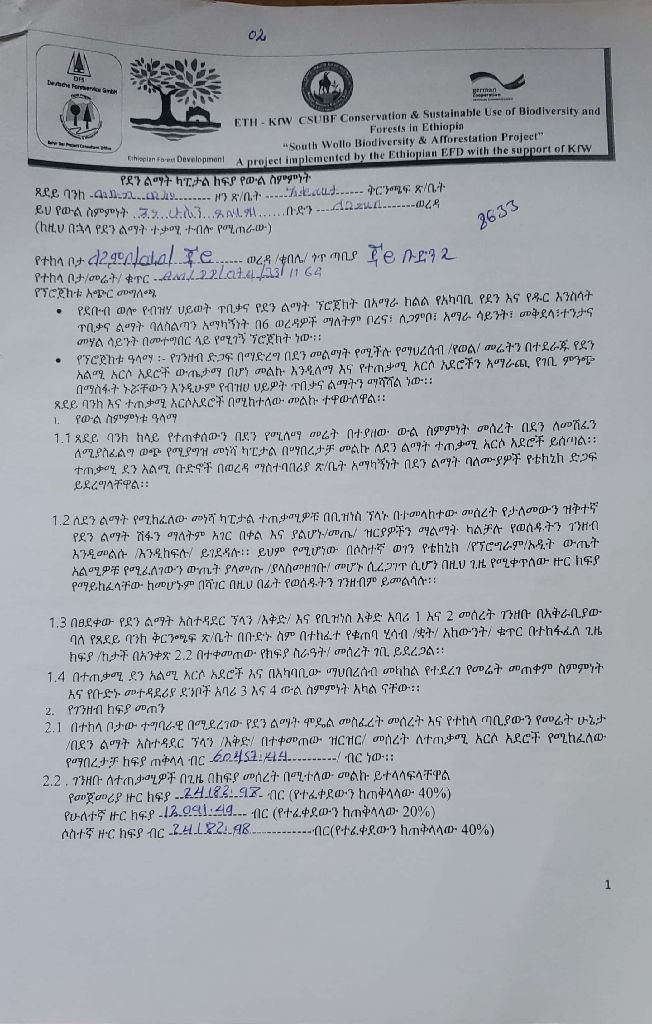 02
DFS
Deutsche Forstservice GmbH
german
cooperation
Bahir Dar Project Consultant Office
ETH - KfW CSUBF Conservation & Sustainable Use of Biodiversity and
Forests in Ethiopia
"South Wollo Biodiversity & Afforestation Project"
Ethiopian Forest Development
A project implemented by the Ethiopian EFD with the support of KfW
የደን ልማት ካፒታል ክፍያ የውል ስምምነት
ጸደይ ባንክ ዞን ጽ/ቤት ቅርንጫፍ ጽ/ቤት
ይህ የውል ስምምነት ቡድን ወረዳ
(ከዚህ በኋላ የደን ልማት ተቃሚ ተብሎ የሚጠራው)
8633
የተከላ ቦታ ወረዳ /ቀበሌ/ ጎጥ ጣቢያ ቡድን 2
የተከላ ቦታ/መሬት/ ቁጥር AM/22/074/23/
የፕሮጀክቱ አጭር መግለጫ
• የደቡብ ወሎ የብዝሃ ህይወት ጥበቃና የደን ልማት ፕሮጀክት በአማራ ክልል የአካባቢ የደን እና የዱር እንስሳት
ጥበቃና ልማት ባለስልጣን አማካኝነት በ6 ወረዳዎች ማለትም ቦረና፣ ለጋምቦ፣ አማራ ሳይንት፣ መቅደላ፣ተንታና
መሃል ሳይንት በመተግበር ላይ የሚገኝ ፕሮጀክት ነው፡፡
• የፕሮጀክቱ ዓላማ ፡- የገንዘብ ድጋፍ በማድረግ በደን መልማት የሚችሉ የማህረሰብ /የወል/ መሬትን በተደራጁ የደን
አልሚ አርሶ አደሮች ውጤታማ በሆነ መልኩ እንዲለማ እና የተቃሚ አርሶ አደሮችን አማራጪ የገቢ ምንጭ
በማስፋት ኑሯቸውን እንዲሁም የብዝሀ ህይዎት ጥበቃና ልማትን ማሻሻል ነው፡፡
ጸደይ ባንክ እና ተጠቃሚ አርሶአደሮች በሚከተለው መልኩ ተዋውለዋል፡፡
1. የውል ስምምነቱ ዓላማ
1.1 ጸደይ ባንክ ከላይ የተጠቀሰውን በደን የሚለማ መሬት በተያዘው ውል ስምምነት መሰረት በደን ለመሸፈን
ለሚያስፈልግ ወጭ የሚያግዝ መነሻ ካፒታል በማበረታቻ መልኩ ለደን ልማት ተጠቃሚ አርሶ አደሮች ይሰጣል፡፡
ተጠቃሚ ደን አልሚ ቡድኖች በወረዳ ማስተባበሪያ ጽ/ቤት አማካኝነት በደን ልማት ባለሙያዎች የቴክኒክ ድጋፍ
ይደረግላቸዋል፡፡
1.2 ለደን ልማት የሚከፈለው መነሻ ካፒታል ተጠቃሚዎቹ በቢዝነስ ፕላኑ በተመላከተው መሰረት የታለመውን ዝቅተኛ
የደን ልማት ሽፋን ማለትም አገር በቀል እና ያልሆኑ/መጤ/ ዝርያዎችን ማልማት ካልቻሉ የወሰዱትን ገንዘብ
እንዲመልሱ /እንዲከፍሉ/ ይገደዳሉ፡፡ ይህም የሚሆነው በሶስተኛ ወገን የቴክኒክ /የፕሮግራም/ኦዲት ውጤት
አልሚዎቹ የሚፈለገውን ውጤት ያላመጡ /ያላስመዘገቡ/ መሆኑ ሲረጋገጥ ሲሆን በዚህ ጊዜ የሚቀጥለው ዙር ክፍያ
የማይከፈላቸው ከመሆኑም በሻገር በዚህ በፊት የወሰዱትን ገንዘብም ይመልሳሉ፡፡
1.3 በፀደቀው የደን ልማት አስተዳደር ፕላን /እቅድ/ እና የቢዝነስ እቅድ አባሪ 1 እና 2 መሰረት ገንዘቡ በአቅራቢያው
ባለ የጸደይ ባንክ ቅርንጫፍ ጽ/ቤት በቡድኑ ስም በተከፈተ የቁጠባ ሂሳብ /ቋት/ አካውንት/ ቁጥር በተከፋፈለ ጊዜ
ክፍያ /ከታች በአንቀጽ 2.2 በተቀመጠው የክፍያ ስራዓት/ መሰረት ገቢ ይደረጋል፡፡
1.4 በተጠቃሚ ደን አልሚ አርሶ አደሮች እና በአካባቢው ማህበረሰብ መካከል የተደረገ የመሬት መጠቀም ስምምነት
እና የቡድኑ መተዳደሪያ ደንቦች አባሪ 3 እና 4 ውል ስምምነት አካል ናቸው፡፡
2. የገንዘብ ክፍያ መጠን
2.1 በተከላ ቦታው ተግባራዊ በሚደረገው የደን ልማት ሞዴል መስፈረት መሰረት እና የተከላ ጣቢያውን የመሬት ሁኔታ
/በደን ልማት አስተዳደር ፕላን /እቅድ/ በተቀመጠው ዝርዝር/ መሰረት ለተጠቃሚ አርሶ አደሮች የሚከፈለው
የማበረታቻ ክፍያ ጠቅላላ ብር 60457.44 / ብር ነው፡፡
2.2 . ገንዘቡ ለተጠቃሚዎች በጊዜ በክፍያ መሰረት በሚተለው መልኩ ይተላላፍላቸዋል
የመጀመሪያ ዙር ክፍያ 24182.98 ብር (የተፈቀደውን ከጠቅላላው 40%)
የሁለተኛ ዙር ክፍያ 12091.49 ብር (የተፈቀደውን ከጠቅላላው 20%)
ሶስተኛ ዙር ክፍያ ብር 24182.98 ብር(የተፈቀደውን ከጠቅላላው 40%)
1